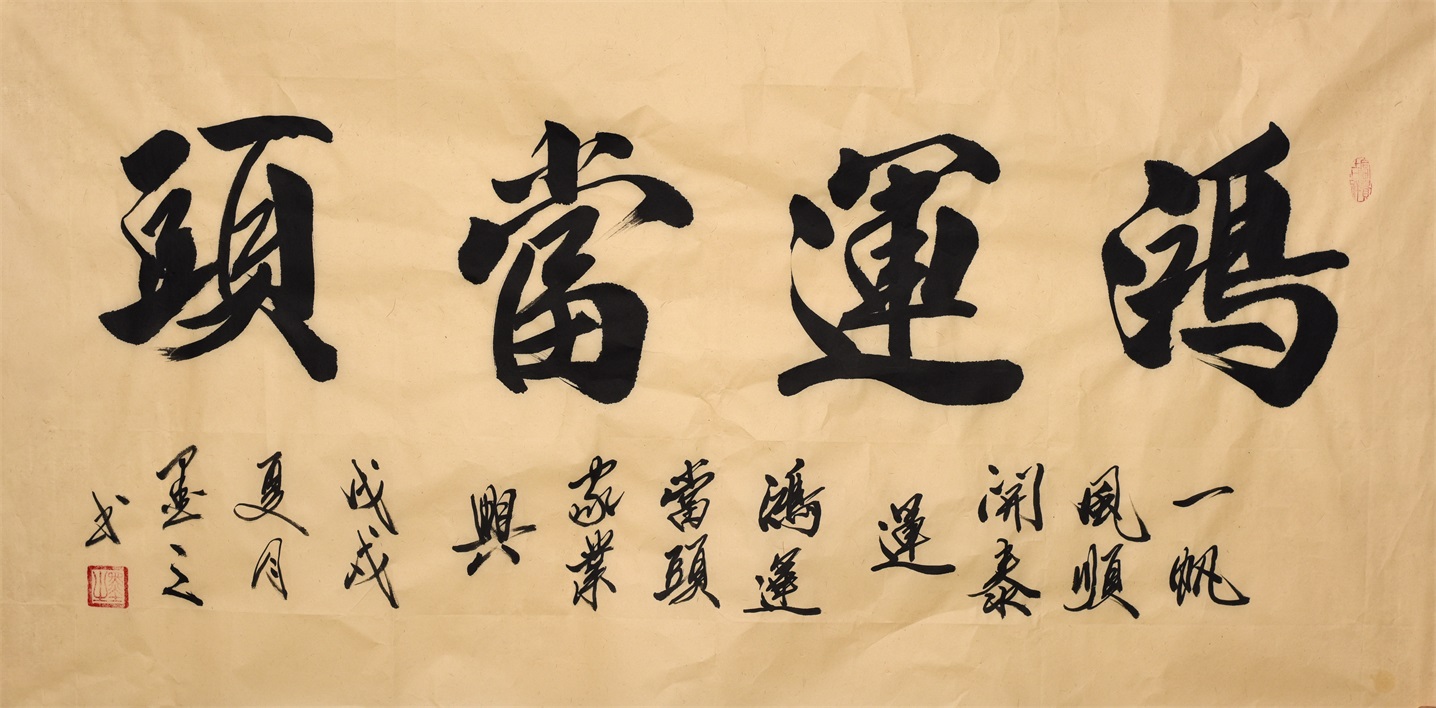 鴻運當頭
一帆
風順
開泰
運
鴻運
當頭
家業
興
戊戌
夏月
墨之
书